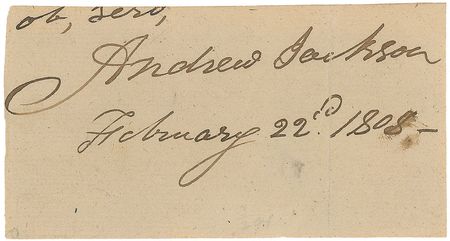 ob, serv,
Andrew Jackson
February 22d. 1808-